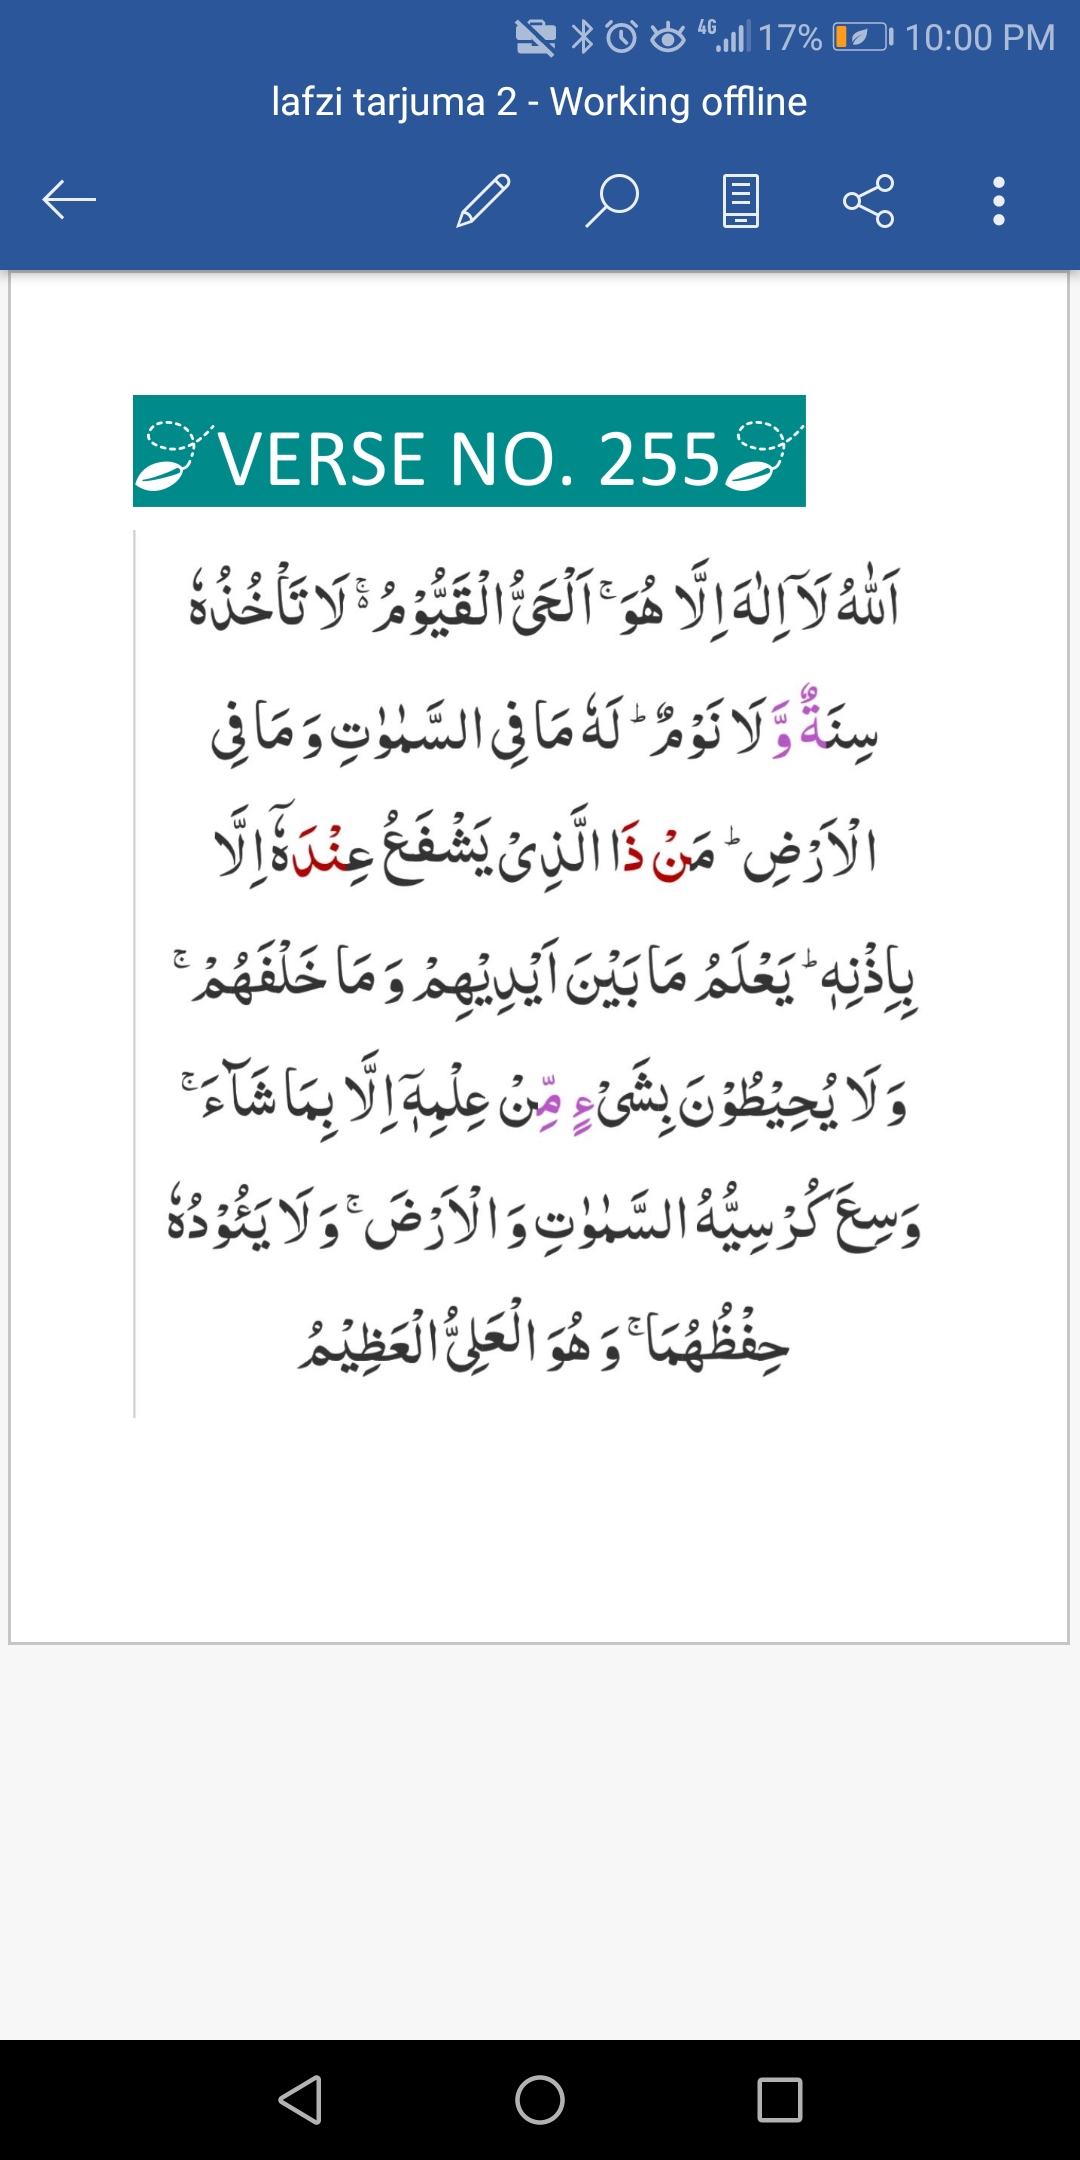 4G 17% 10:00 PM
lafzi tarjuma 2 - Working offline
VERSE NO. 255
اَللّٰهُ لَاۤ اِلٰهَ اِلَّا هُوَ ۚ اَلْحَیُّ الْقَیُّوْمُ ۚ۬ لَا تَاْخُذُهٗ
سِنَةٌ وَّ لَا نَوْمٌ ؕ لَهٗ مَا فِی السَّمٰوٰتِ وَ مَا فِی
الْاَرْضِ ؕ مَنْ ذَا الَّذِیْ یَشْفَعُ عِنْدَهٗۤ اِلَّا
بِاِذْنِهٖ ؕ یَعْلَمُ مَا بَیْنَ اَیْدِیْهِمْ وَ مَا خَلْفَهُمْ ۚ
وَ لَا یُحِیْطُوْنَ بِشَیْءٍ مِّنْ عِلْمِهٖۤ اِلَّا بِمَا شَآءَ ۚ
وَسِعَ كُرْسِیُّهُ السَّمٰوٰتِ وَ الْاَرْضَ ۚ وَ لَا یَـُٔوْدُهٗ
حِفْظُهُمَا ۚ وَ هُوَ الْعَلِیُّ الْعَظِیْمُ